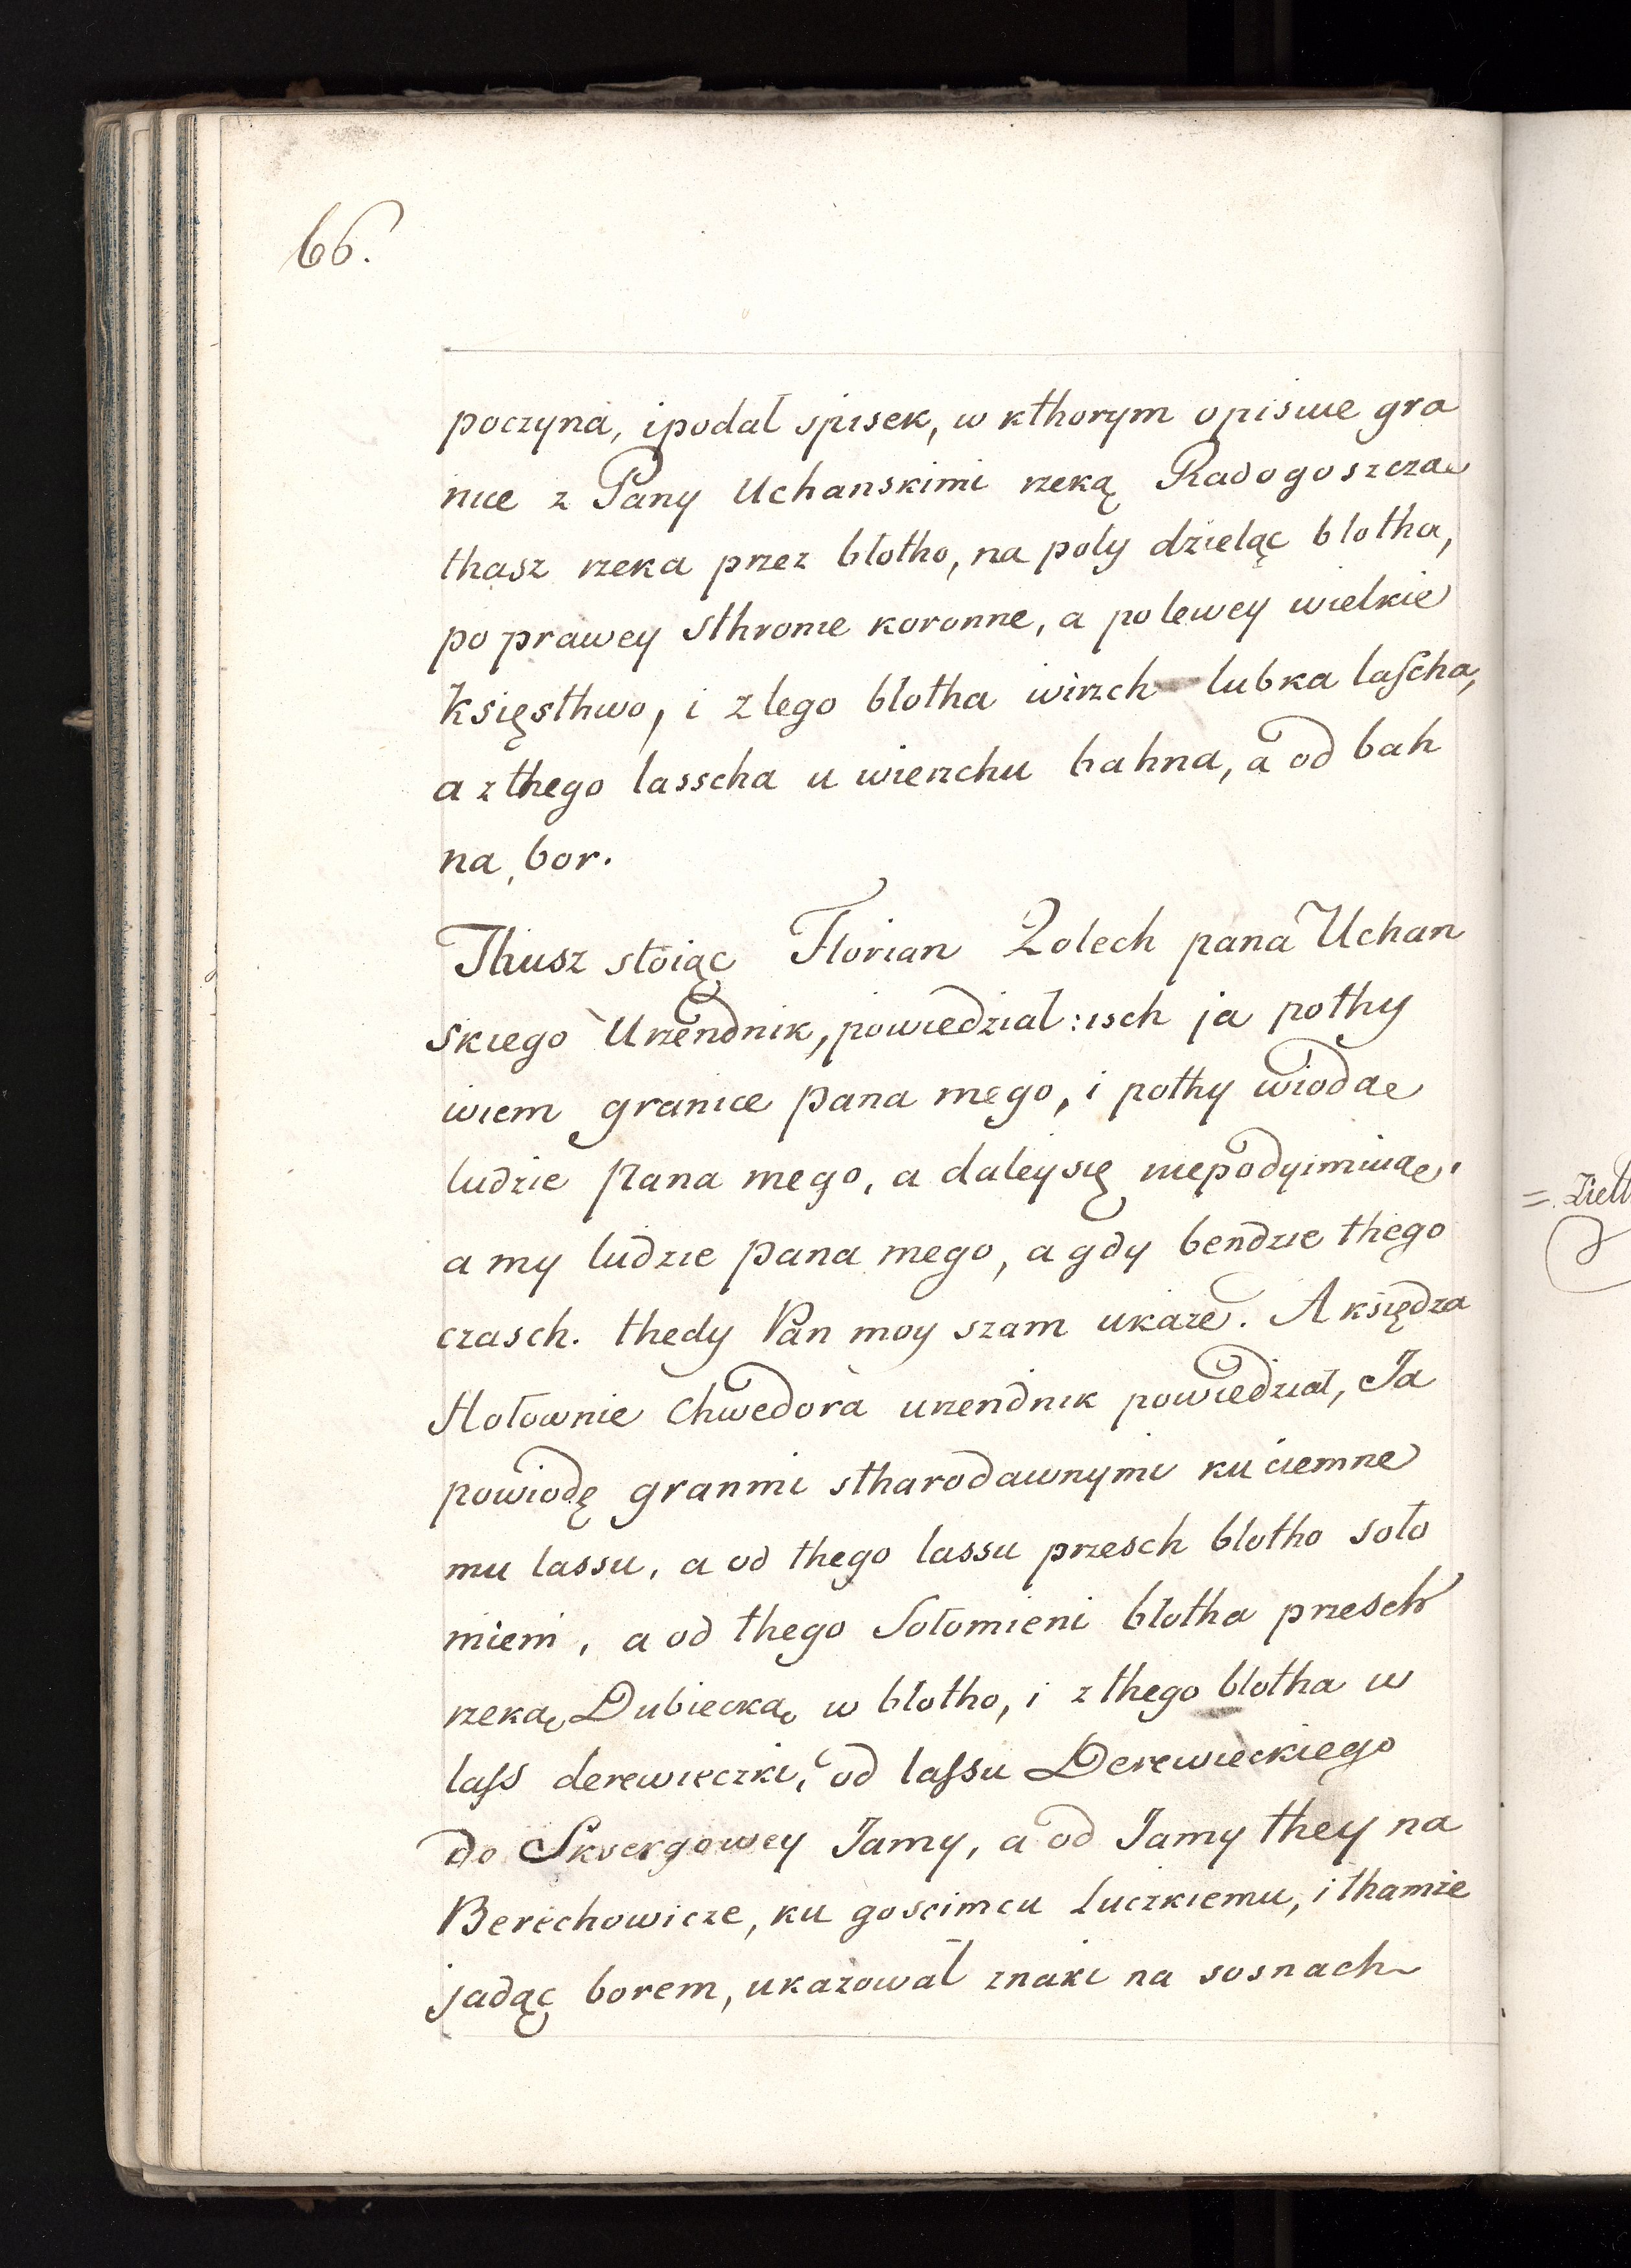 66.
poczyna, i podal spisek, w kthorym opisuie gra
nice z Pany Uchanskimi rzeką Radogoszczą
thasz rzeka przez błotho, na poly dzieląc blotha,
po prawey sthronie koronne, a po lewey wielkie
Księsthwo, i z lego blotha wirzch lubka lascha,
a z thego lasscha u wierzchu bahna, a od bah
na, bor.
Thusz stoiąc Florian Zolech pana Uchan
skiego Urzendnik, powiedzial: isch ja pothy
wiem granice pana mego, i pothy wiodą
ludzie Pana mego, a daley się niepodyimuią,
a my ludzie pana mego, a gdy bendzie thego
czasch. thedy Pan moy szam ukaze. A księdza
Hołownie Chwedora urzendnik powiedzial, Ja
powiodę granmi stharodawnymi ku ciemne
mu lassu, a od thego lassu przesch blotho soło
mieni, a od thego Sołomieni błotha przesch
rzeką Dubiecką w błotho, i z thego blotha w
lass derewieczki, od lassu Derewieckiego
do Skvergowey Jamy, a od Jamy they na
Berechowicze, ku goscimcu Luczkiemu, i thamże
jadąc borem, ukazowal znaki na sosnach
=. Ziell